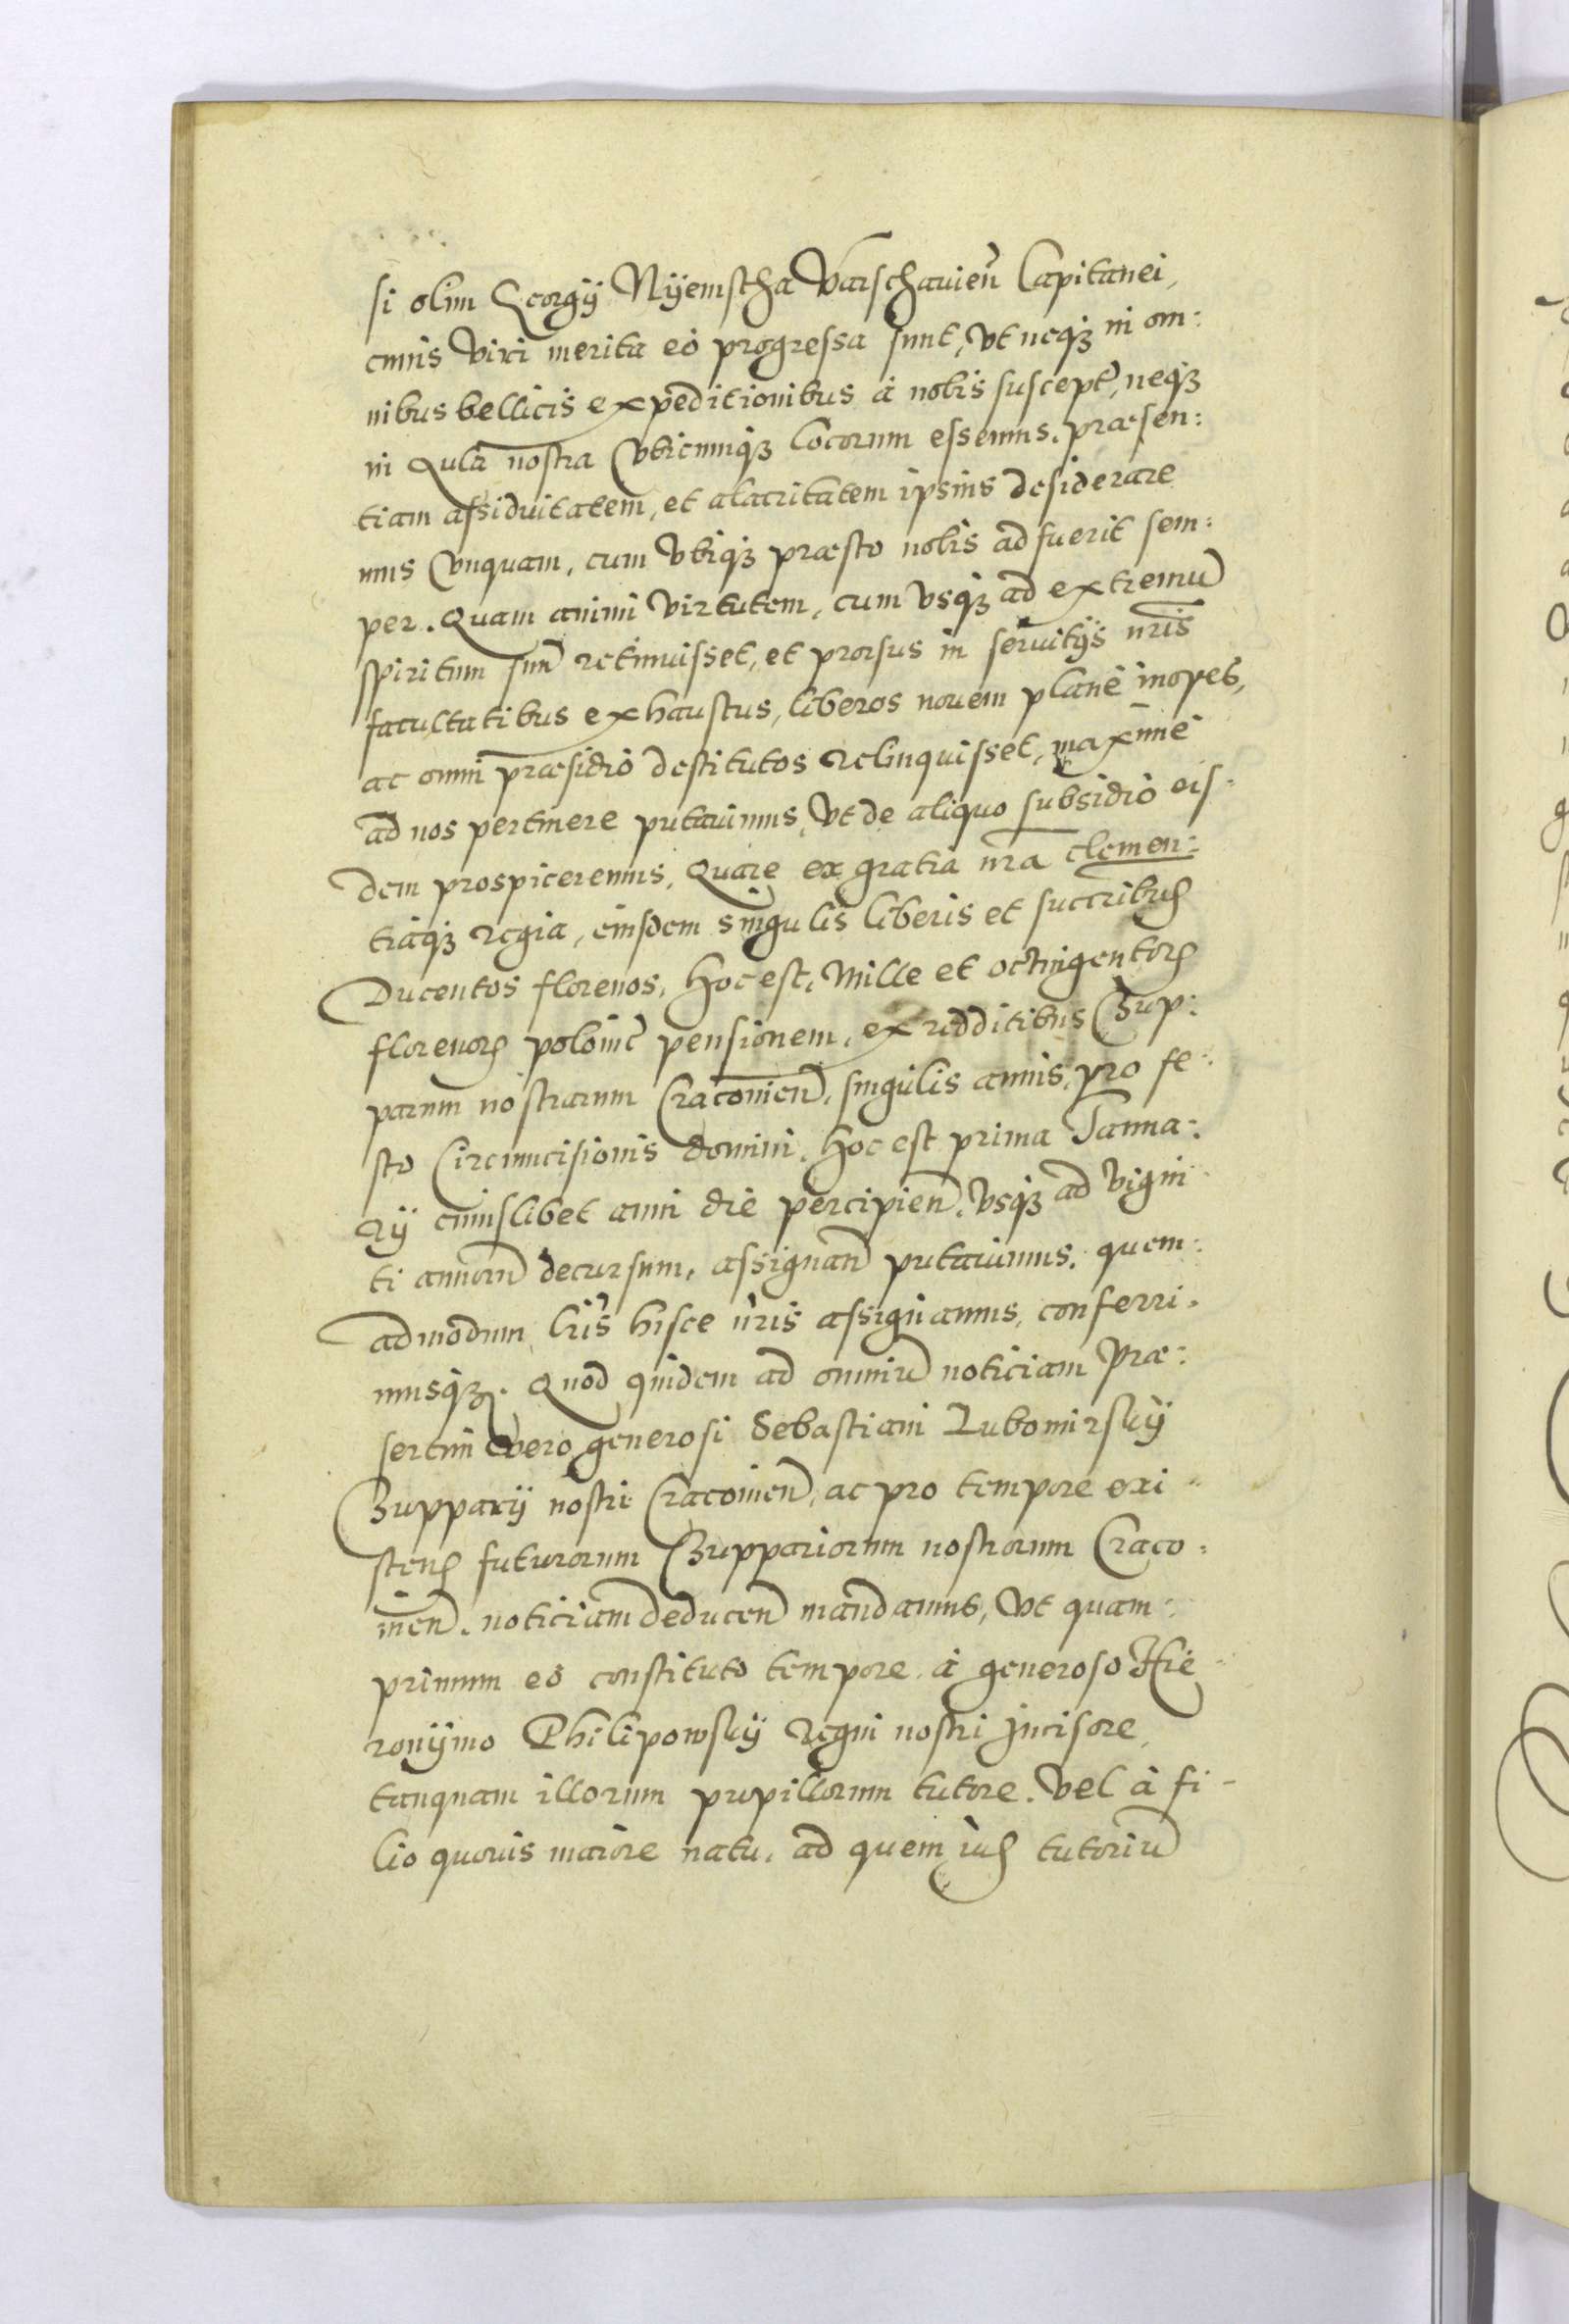 si olim Georgÿ Nÿemstcha Varschauień Capitanei,
cuius viri merita eò progressa sunt, vt neqꝫ in om:
nibus bellicis expeditionibus à nobis suscept̃, neqꝫ
in Aula nostra vbicunqꝫ locorum essemus, præsen:
tiam assiduitatem, et alacritatem ipsius desiderare
mus vnquam, cum vbiqꝫ præsto nobis adfuerit sem:
per. Quam animi virtutem, cum vsqꝫ ad extremũ
spiritum suũ retinuisset, et prorsus in seruitÿs nr̃is
facultatibus exhaustus, liberos nouem planè inopes,
ac omni præsidio destitutos relinquisset, maximè
ad nos pertinere putauimus, vt de aliquo subsidio eis:
dem prospiceremus. Quare ex gratia nr̃a clemen:
tiaqꝫ regia, eiusdem singulis liberis et succribus
Ducentos florenos, hoc est, Mille et octingentorꝫ
florenorꝫ polonic̃ pensionem, ex redditibus Zup:
parum nostrarum Cracouień, singulis annis, pro fe:
sto Circumcisionis domini, hoc est prima Ianua:
rÿ cuiuslibet anni die percipień, vsqꝫ ad viginti
ti annorũ decursum, assignań putauimus, quem:
admodum lr̃is hisce nr̃is assignamus, conferri:
musqꝫ. Quod quidem ad omniũ noticiam præ:
sertim vero generosi Sebastiani Lubomirskÿ
Zupparÿ nostri Cracouień, ac pro tempore exi:
steñ futurorum Zuppariorum nostrorum Craco:
uień, noticiam deduceñ mandamus, vt quam:
primum eo constituto tempore à generoso Hie:
ronÿmo Philipowskÿ Regni nostri Incisore,
tanquam illorum pupillorum tutore, vel à fi-
lio quouis maiore natu, ad quem ius tutoriũ